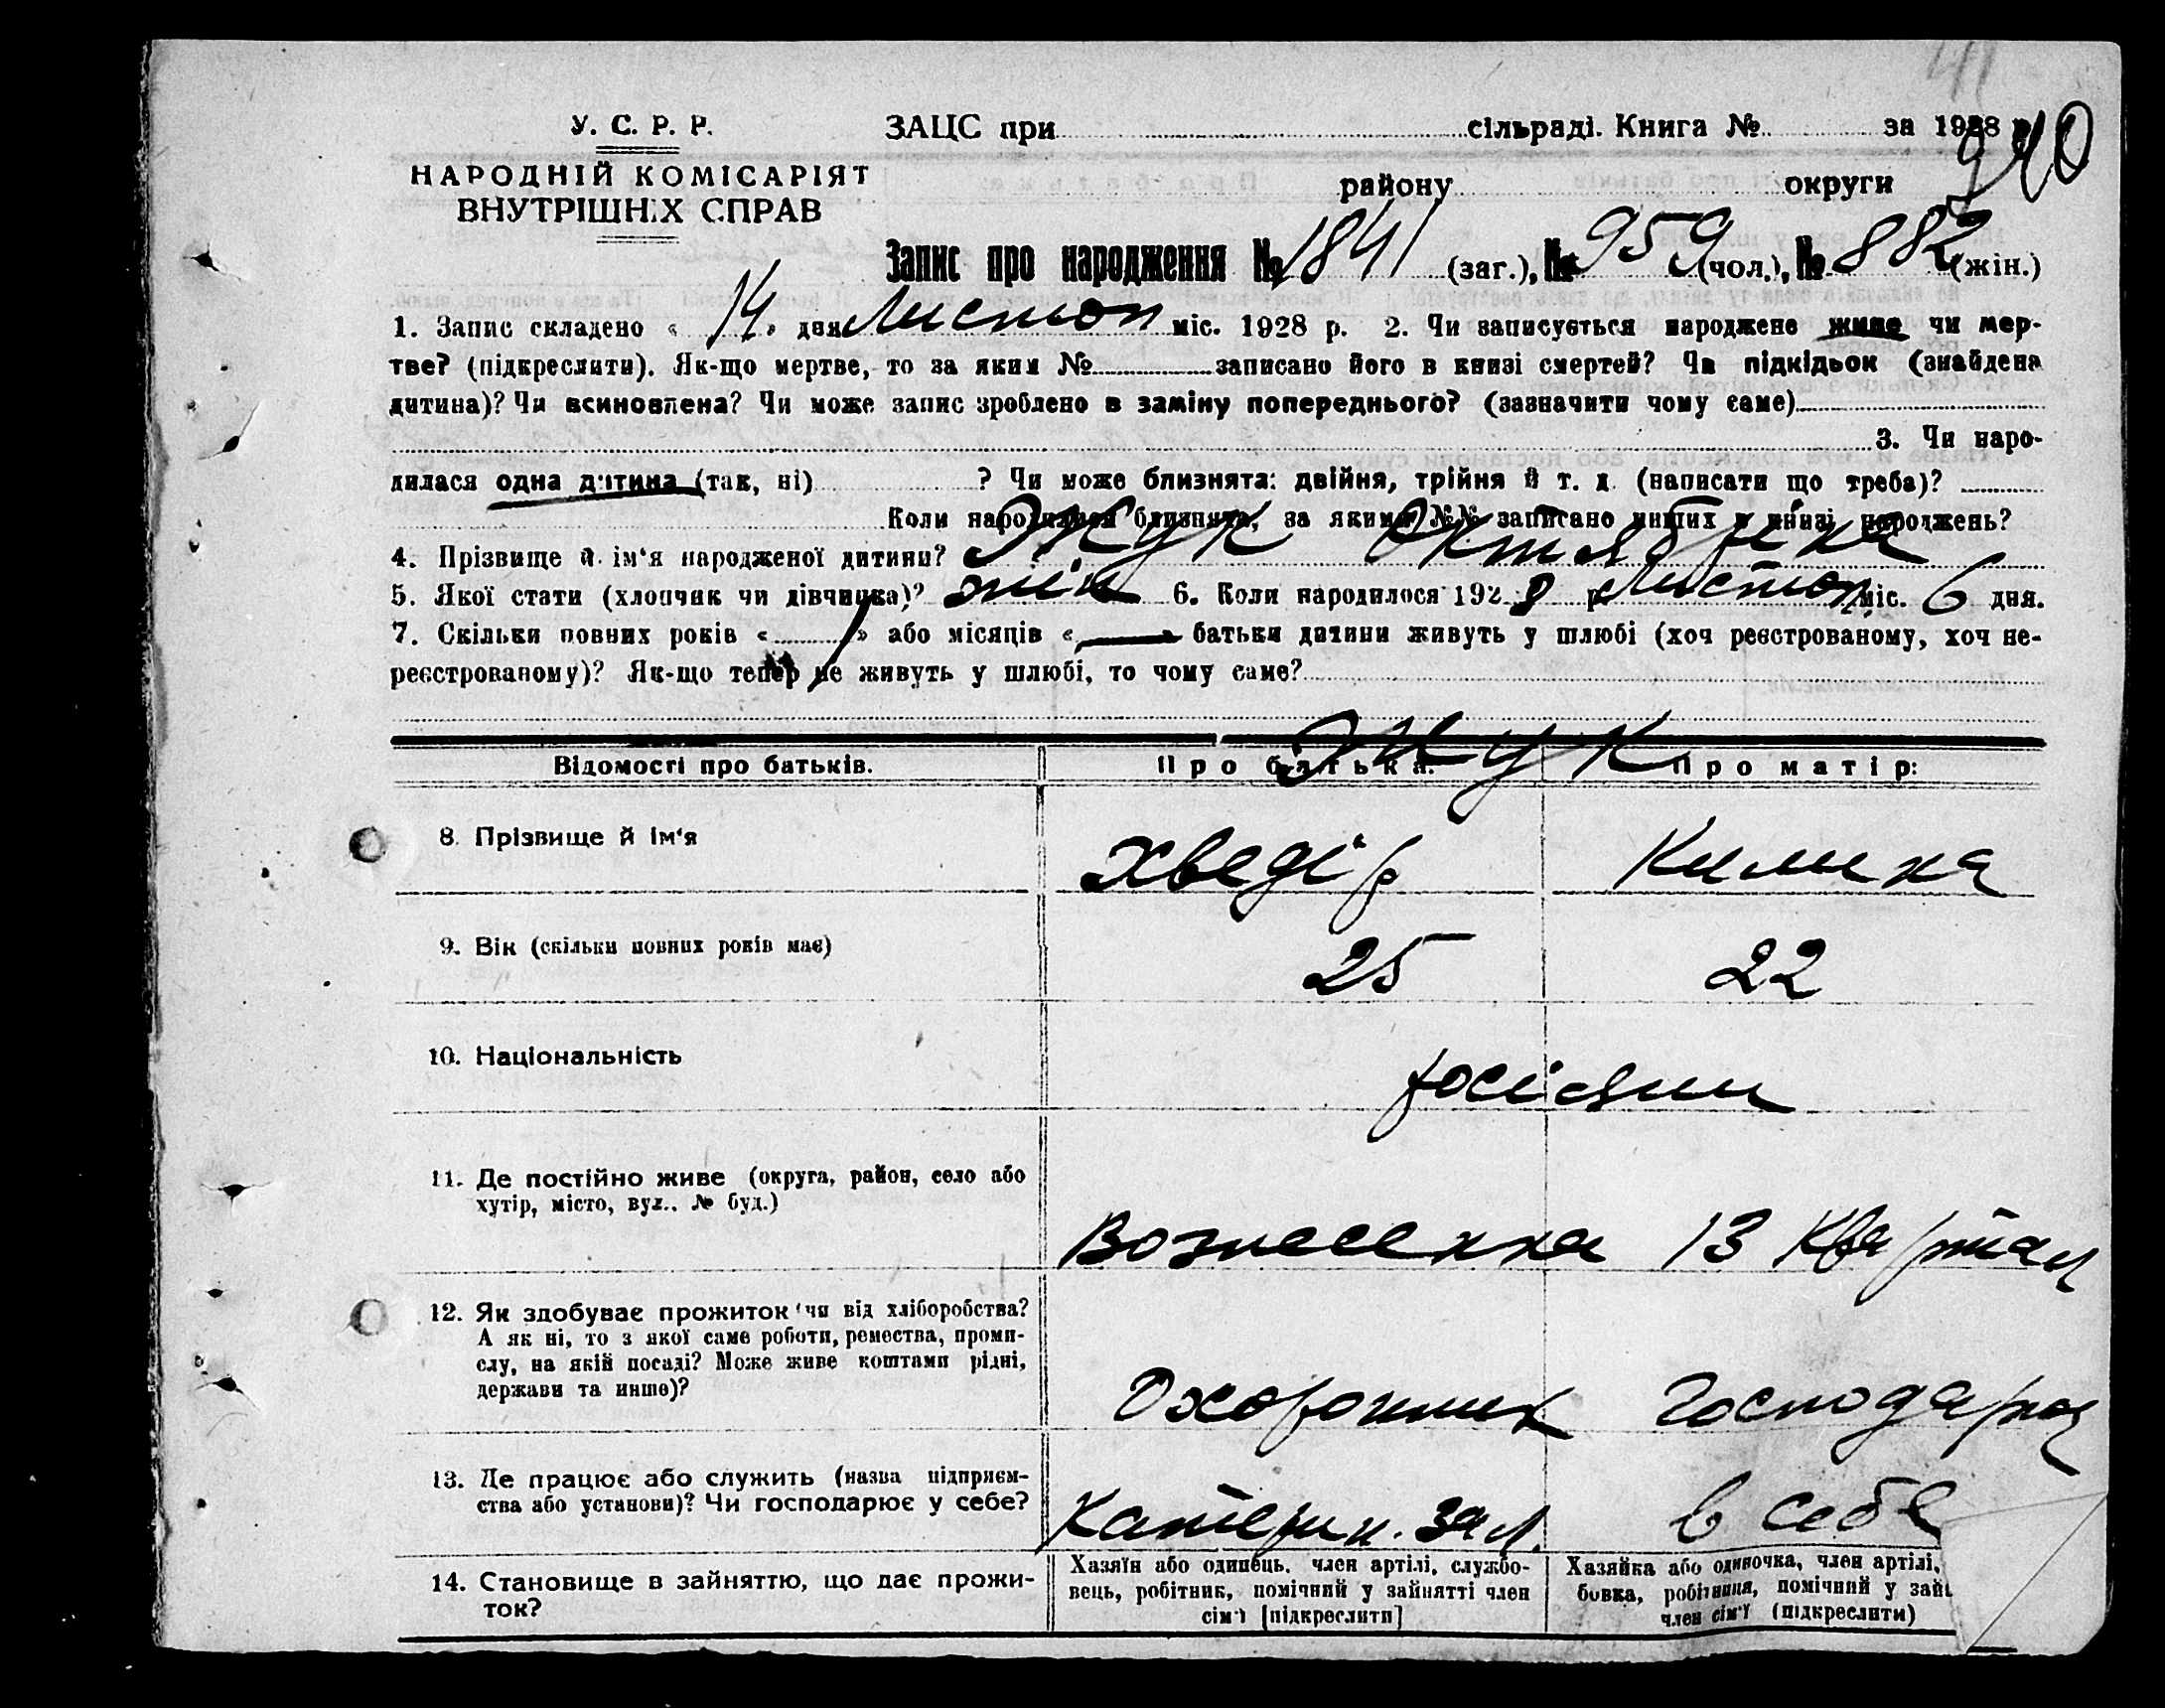 41
У. С. Р. Р.
НАРОДНІЙ КОМІСАРІЯТ
ВНУТРІШНІХ СПРАВ
ЗАЦС при сільраді. Книга № за 1928 р.
940
району округи
Запис про народження № 1841 (заг.), № 959 (чол.), № 882 (жін.)
1. Запис складено « 14 » дня Листоп міс. 1928 р. 2. Чи записується народжене живе чи мер-
тве? (підкреслити). Як-що мертве, то за яким № записано його в книзі смертей? Чи підкідьок (знайдена
дитина)? Чи всиновлена? Чи може запис зроблено в заміну попереднього? (зазначити чому саме)
3. Чи наро-
дилася одна дитина (так, ні) ? Чи може близнята: двійня, трійня й т. д. (написати що треба)?
Коли народилися близнята, за якими №№ записано инших в книзі народжень?
4. Прізвище й ім'я народженої дитини? Жук Октябріна
5. Якої стати (хлопчик чи дівчинка)? жін 6. Коли народилося 1928 р. Листоп міс. 6 дня.
7. Скільки повних років « 1 » або місяців « — » батьки дитини живуть у шлюбі (хоч реєстрованому, хоч не-
реєстрованому)? Як-що тепер не живуть у шлюбі, то чому саме?
Жук
Відомості про батьків. Про батька: Про матір:
8. Прізвище й ім'я Хведір Килина
9. Вік (скільки повних років має) 25 22
10. Національність росіяни
11. Де постійно живе (округа, район, село або
хутір, місто, вул., № буд.)
Вознесенка 13 Квартал
12. Як здобуває прожиток (чи від хліборобства?
А як ні, то з якої саме роботи, ремества, проми-
слу, на якій посаді? Може живе коштами рідні,
держави та инше)?
Охоронник Господарює
13. Де працює або служить (назва підприєм-
ства або установи)? Чи господарює у себе?
Катерин. зал. в себе
14. Становище в зайняттю, що дає прожи-
ток?
Хазяїн або одинець, член артілі, службо-
вець, робітник, помічний у зайнятті член
сім'ї [підкреслити]
Хазяйка або одиночка, член артілі,
бовка, робітниця, помічний у зай
член сім'ї (підкреслити)